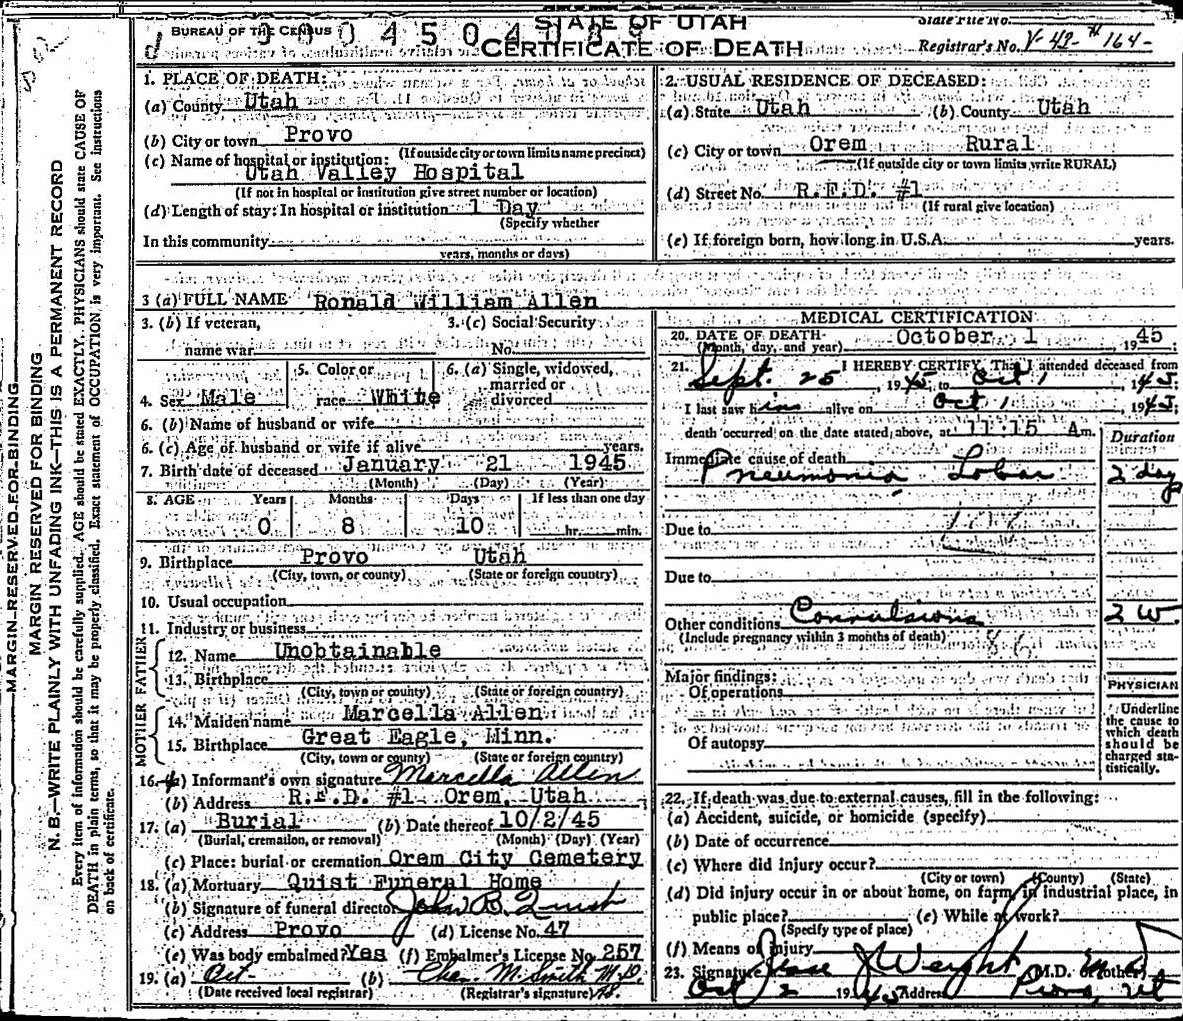 BUREAU OF THE CENSUS
STATE OF UTAH
CERTIFICATE OF DEATH
State File No.
Registrar's No. V-42-#164-
MARGIN RESERVED FOR BINDING
MARGIN RESERVED FOR BINDING
N. B.—WRITE PLAINLY WITH UNFADING INK—THIS IS A PERMANENT RECORD
Every item of information should be carefully supplied. AGE should be stated EXACTLY. PHYSICIANS should state CAUSE OF
DEATH in plain terms, so that it may be properly classified. Exact statement of OCCUPATION is very important. See instructions
on back of certificate.
1. PLACE OF DEATH:
(a) County Utah
(b) City or town Provo
(If outside city or town limits name precinct)
(c) Name of hospital or institution:
Utah Valley Hospital
(If not in hospital or institution give street number or location)
(d) Length of stay: In hospital or institution 1 Day
(Specify whether
In this community
years, months or days)
2. USUAL RESIDENCE OF DECEASED:
(a) State Utah (b) County Utah
(c) City or town Orem Rural
(If outside city or town limits, write RURAL)
(d) Street No. R.F.D. #1
(If rural give location)
(e) If foreign born, how long in U.S.A. years.
3 (a) FULL NAME Ronald William Allen
3. (b) If veteran,
name war
3. (c) Social Security
No.
4. Sex Male
5. Color or
race White
6. (a) Single, widowed,
married or
divorced
6. (b) Name of husband or wife
6. (c) Age of husband or wife if alive years.
7. Birth date of deceased January 21 1945
(Month) (Day) (Year)
8. AGE Years Months Days If less than one day
0 8 10 hr. min.
9. Birthplace Provo Utah
(City, town, or county) (State or foreign country)
10. Usual occupation
11. Industry or business
FATHER
12. Name Unobtainable
13. Birthplace
(City, town or county) (State or foreign country)
MOTHER
14. Maiden name Marcella Allen
15. Birthplace Great Eagle, Minn.
(City, town or county) (State or foreign country)
16. (a) Informant's own signature Marcella Allen
(b) Address R.F.D. #1 Orem, Utah
17. (a) Burial (b) Date thereof 10/2/45
(Burial, cremation, or removal) (Month) (Day) (Year)
(c) Place: burial or cremation Orem City Cemetery
18. (a) Mortuary Quist Funeral Home
(b) Signature of funeral director John B. Quist
(c) Address Provo (d) License No. 47
(e) Was body embalmed? Yes (f) Embalmer's License No. 257
19. (a) Oct- (b) Chas. M. Smith M.D.
(Date received local registrar) (Registrar's signature)
MEDICAL CERTIFICATION
20. DATE OF DEATH October 1 1945
(Month, day, and year)
21. I HEREBY CERTIFY, That I attended deceased from
Sept. 25, 1945, to Oct 1, 1945;
I last saw him alive on Oct 1, 1945;
death occurred on the date stated above, at 11:15 Am.
Duration
Immediate cause of death
Pneumonia Lobar 2 days
Due to
Due to
Other conditions Convulsions 2 W.
(Include pregnancy within 3 months of death)
86
Major findings:
Of operations
Of autopsy
PHYSICIAN
Underline
the cause to
which death
should be
charged sta-
tistically.
22. If death was due to external causes, fill in the following:
(a) Accident, suicide, or homicide (specify)
(b) Date of occurrence
(c) Where did injury occur?
(City or town) (County) (State)
(d) Did injury occur in or about home, on farm, in industrial place, in
public place? (e) While at work?
(Specify type of place)
(f) Means of injury
23. Signature Jesse J Weight M.D. or other
Oct 2 1945 Address Provo, Ut